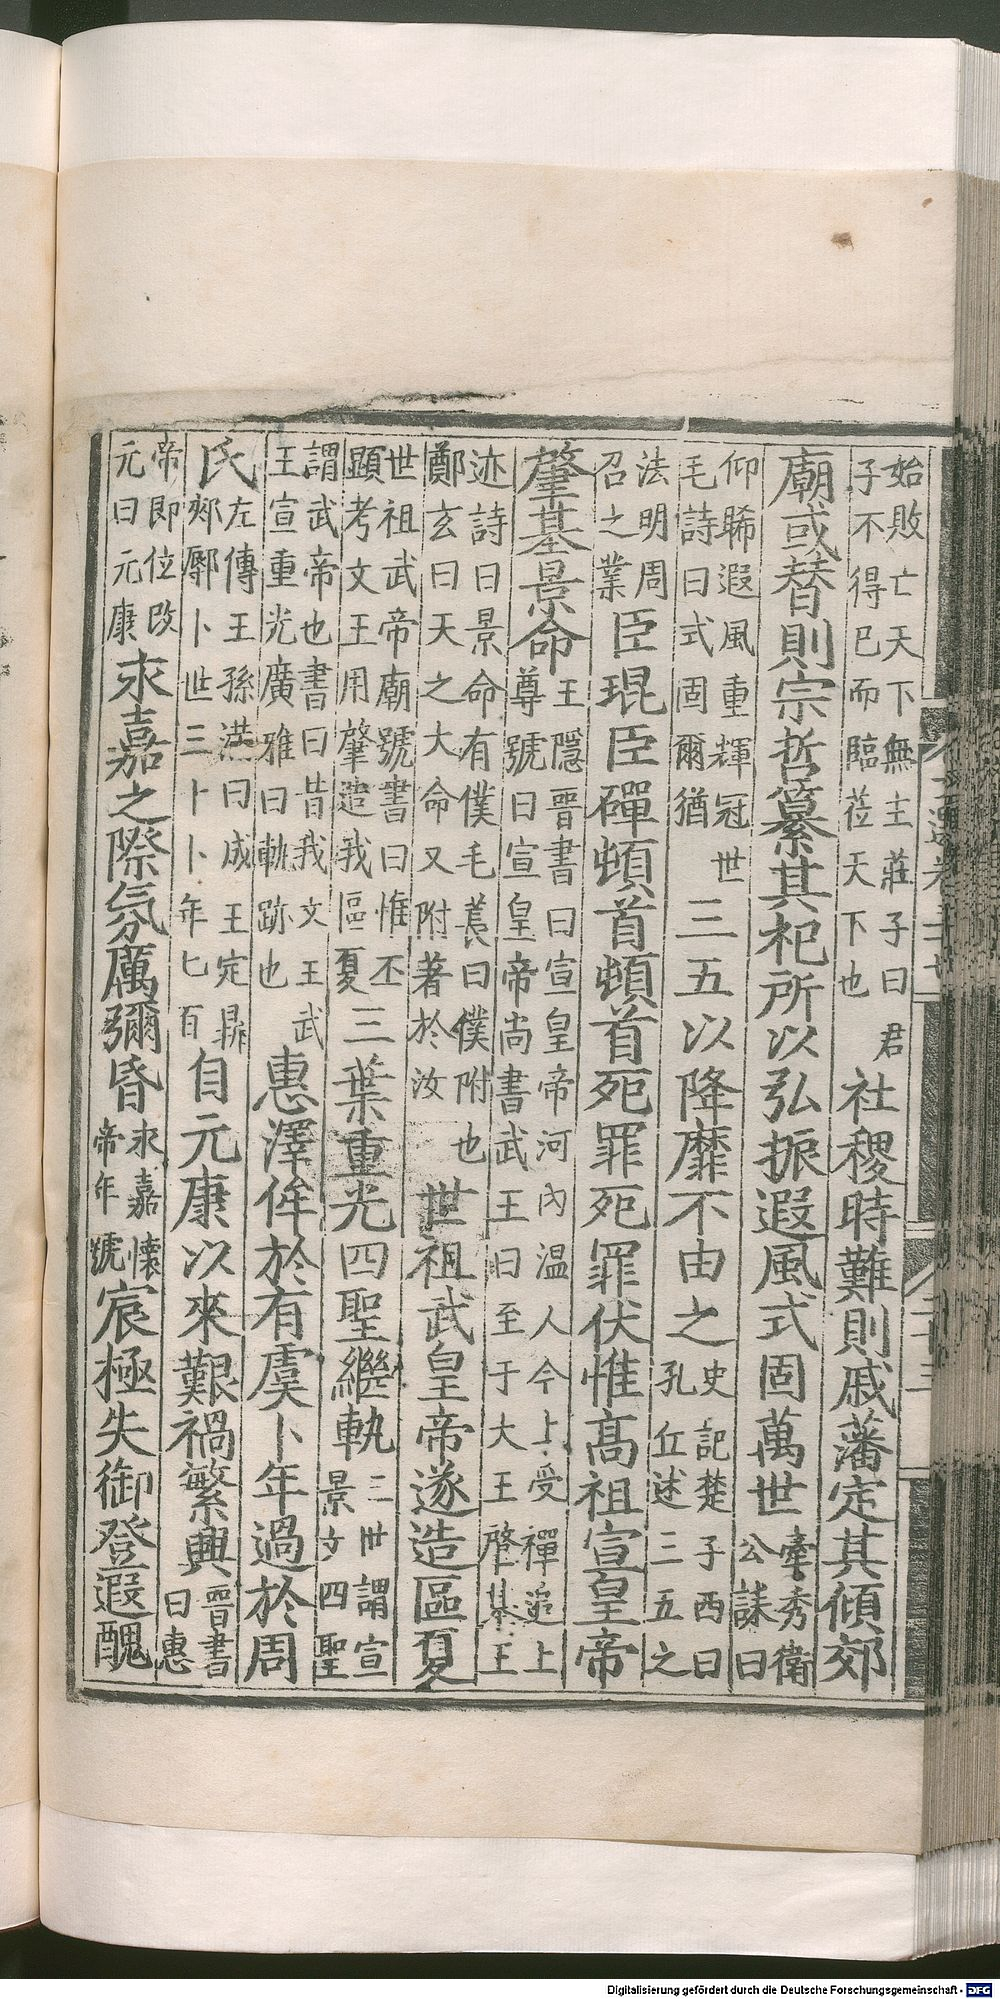 始敗亡天下無主莊子曰君
子不得已而臨莅天下也
社稷時難則戚藩定其傾郊
廟或替則宗哲纂其祀所以弘振遐風式固萬世
牽秀衛
公誄曰
仰睎遐風重輝冠世
毛詩曰式固爾猶
三五以降靡不由之
史記楚子西曰
孔丘述三五之
法明周
召之業
臣琨臣磾頓首頓首死罪死罪伏惟髙祖宣皇帝
肇基景命
王隱晉書曰宣皇帝河內温人今上受禪追上
尊號曰宣皇帝尚書武王曰至于大王肇基王
迹詩曰景命有僕毛萇曰僕附也
鄭玄曰天之大命又附著於汝
世祖武皇帝遂造區夏
世祖武帝廟號書曰惟丕
顯考文王用肇造我區夏
三葉重光四聖繼軌
三世謂宣
景文四聖
謂武帝也書曰昔我文王武
王宣重光廣雅曰軌跡也
惠澤侔於有虞卜年過於周
氏
左傳王孫滿曰成王定鼎
郟鄏卜世三卜卜年七百
自元康以來艱禍繁興
晉書
曰惠
帝即位改
元曰元康
永嘉之際氛厲彌昏
永嘉懷
帝年號
宸極失御登遐醜
Digitalisierung gefördert durch die Deutsche Forschungsgemeinschaft - DFG